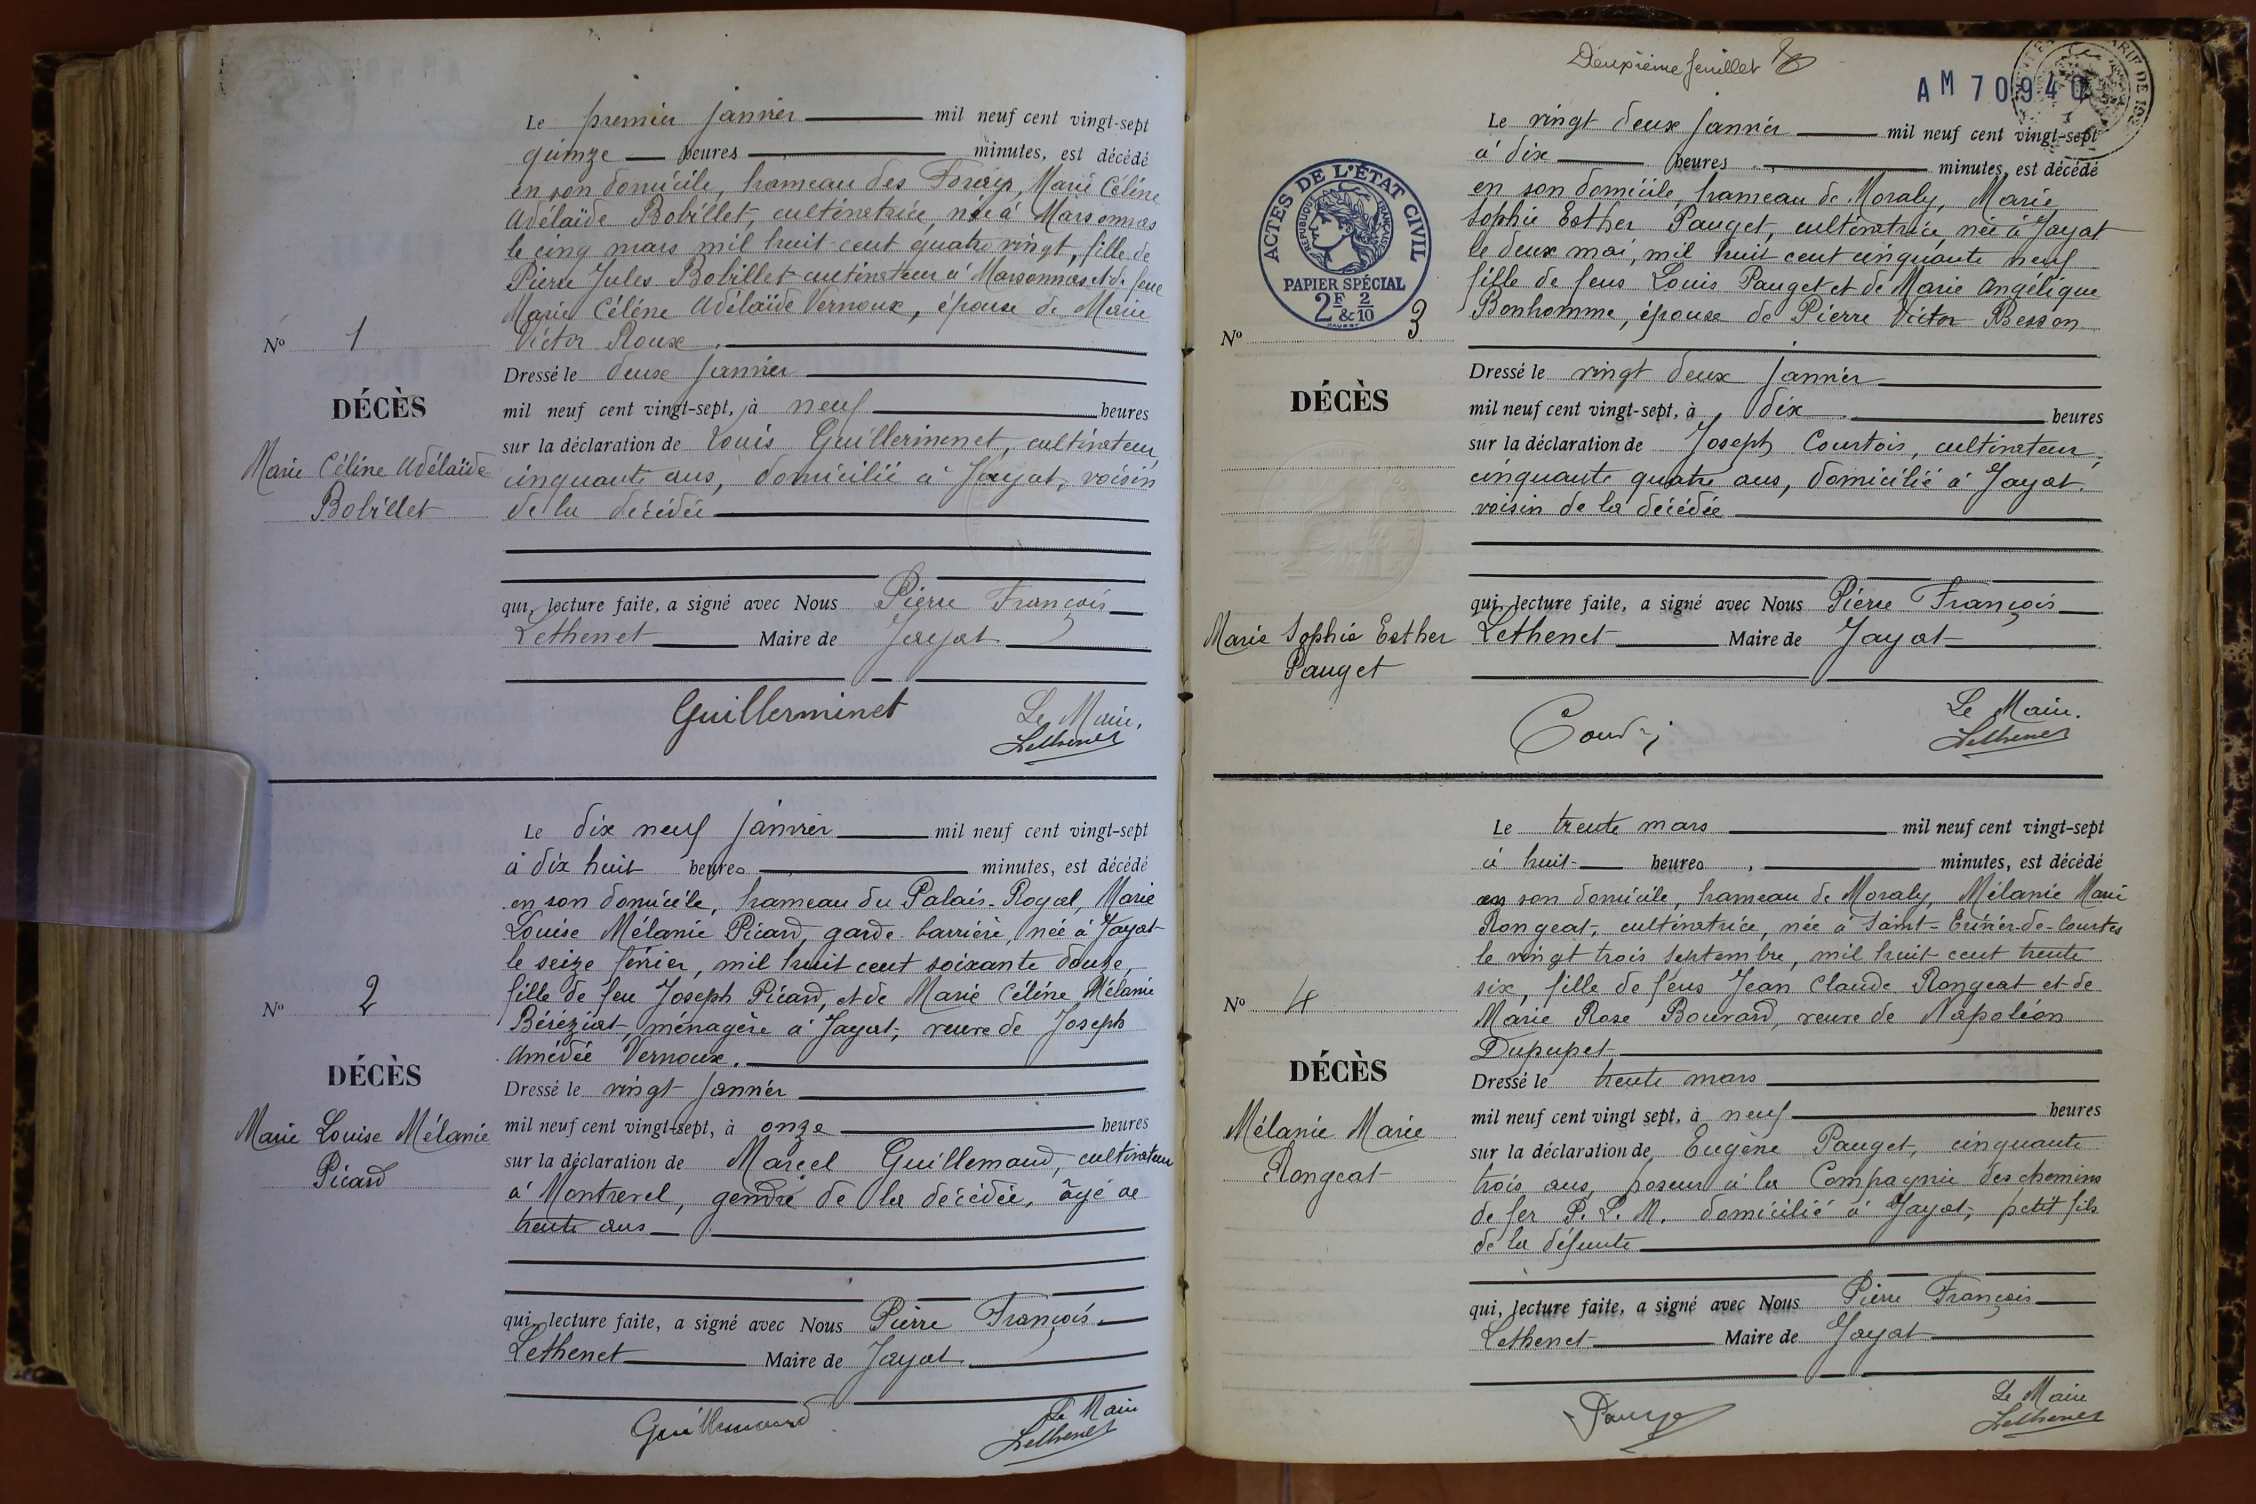 Le premier janvier mil neuf cent vingt-sept
quinze heures minutes, est décédé
en son domicile, hameau des Marie Céline
Adélaïde Bobillet, cultivatrice, née à Marsonnas
le cinq mars mil huit cent quatre vingt, fille de
Pierre Jules Bobillet cultivateur à Marsonnas et de feue
Marie Céline Adélaïde Vernoux, épouse de Marie
Victor Roux.
Nº 1
Dressé le deux janvier
DÉCÈS
mil neuf cent vingt-sept, à neuf heures
sur la déclaration de Louis Guillerminet, cultivateur,
Marie Céline Adélaïde
Bobillet
cinquante ans, domicilié à Jayat, voisin
de la décédée
qui, lecture faite, a signé avec Nous Pierre François
Lethenet Maire de Jayat
Guillerminet
Le Maire,
Lethenet
Le dix neuf janvier mil neuf cent vingt-sept
à dix huit heures minutes, est décédé
en son domicile, hameau du Palais-Royal, Marie
Louise Mélanie Picard, garde-barrière, née à Jayat
le seize février, mil huit cent soixante douze,
fille de feu Joseph Picard, et de Marie Céline Mélanie
Béréziat, ménagère à Jayat, veuve de Joseph
Amédée Vernoux.
Nº 2
DÉCÈS
Marie Louise Mélanie
Picard
Dressé le vingt janvier
mil neuf cent vingt-sept, à onze heures
sur la déclaration de Marcel Guillemaud, cultivateur
à Montrevel, gendre de la décédée, âgé de
trente ans
qui, lecture faite, a signé avec Nous Pierre François
Lethenet Maire de Jayat
Guillemaud
Le Maire
Lethenet
Deuxième feuillet
AM 70940
Le vingt deux janvier mil neuf cent vingt-sept
à dix heures minutes, est décédé
en son domicile, hameau de Moraly, Marie
Sophie Esther Pauget, cultivatrice, née à Jayat
le deux mai, mil huit cent cinquante neuf
fille de feus Louis Pauget et de Marie Angélique
Bonhomme, épouse de Pierre Victor Besson
ACTES DE L'ÉTAT CIVIL
RÉPUBLIQUE FRANÇAISE
PAPIER SPÉCIAL
2F & 2/10
Nº 3
DÉCÈS
Marie Sophie Esther
Pauget
Dressé le vingt deux janvier
mil neuf cent vingt-sept, à dix heures
sur la déclaration de Joseph Courtois, cultivateur,
cinquante quatre ans, domicilié à Jayat,
voisin de la décédée
qui, lecture faite, a signé avec Nous Pierre François
Lethenet Maire de Jayat
Le Maire.
Lethenet
Le trente mars mil neuf cent vingt-sept
à huit heures minutes, est décédé
en son domicile, hameau de Moraly, Mélanie Marie
Rongeat, cultivatrice, née à Saint-Trivier-de-Courtes
le vingt trois septembre, mil huit cent trente
six, fille de feus Jean Claude Rongeat et de
Marie Rose Bouvard, veuve de Napoléon
Dupupet
Nº 4
DÉCÈS
Mélanie Marie
Rongeat
Dressé le trente mars
mil neuf cent vingt sept, à neuf heures
sur la déclaration de Eugène Pauget, cinquante
trois ans, poseur à la Compagnie des chemins
de fer P. L. M. domicilié à Jayat, petit fils
de la défunte
qui, lecture faite, a signé avec Nous Pierre François
Lethenet Maire de Jayat
Pauget
Le Maire
Lethenet